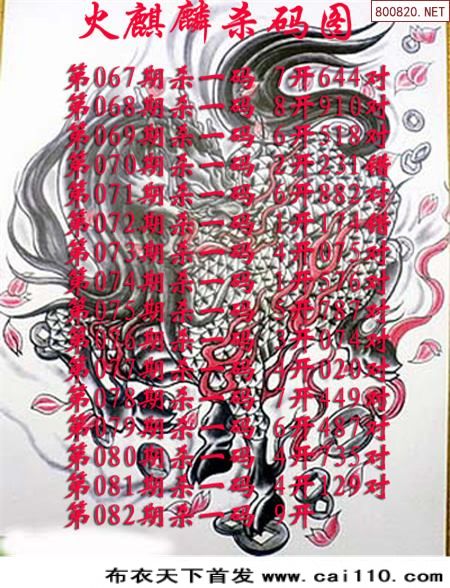 火麒麟杀码图
800820.NET
第067期杀一码 7开644对
第068期杀一码 8开910对
第069期杀一码 6开518对
第070期杀一码 2开231错
第071期杀一码 6开882对
第072期杀一码 1开174错
第073期杀一码 4开075对
第074期杀一码 1开576对
第075期杀一码 开787对
第076期杀一码 3开074对
第077期杀一码 4开020对
第078期杀一码 7开449对
第079期杀一码 6开487对
第080期杀一码 开735对
第081期杀一码 4开129对
第082期杀一码 9开
布衣天下首发 www.cai110.com